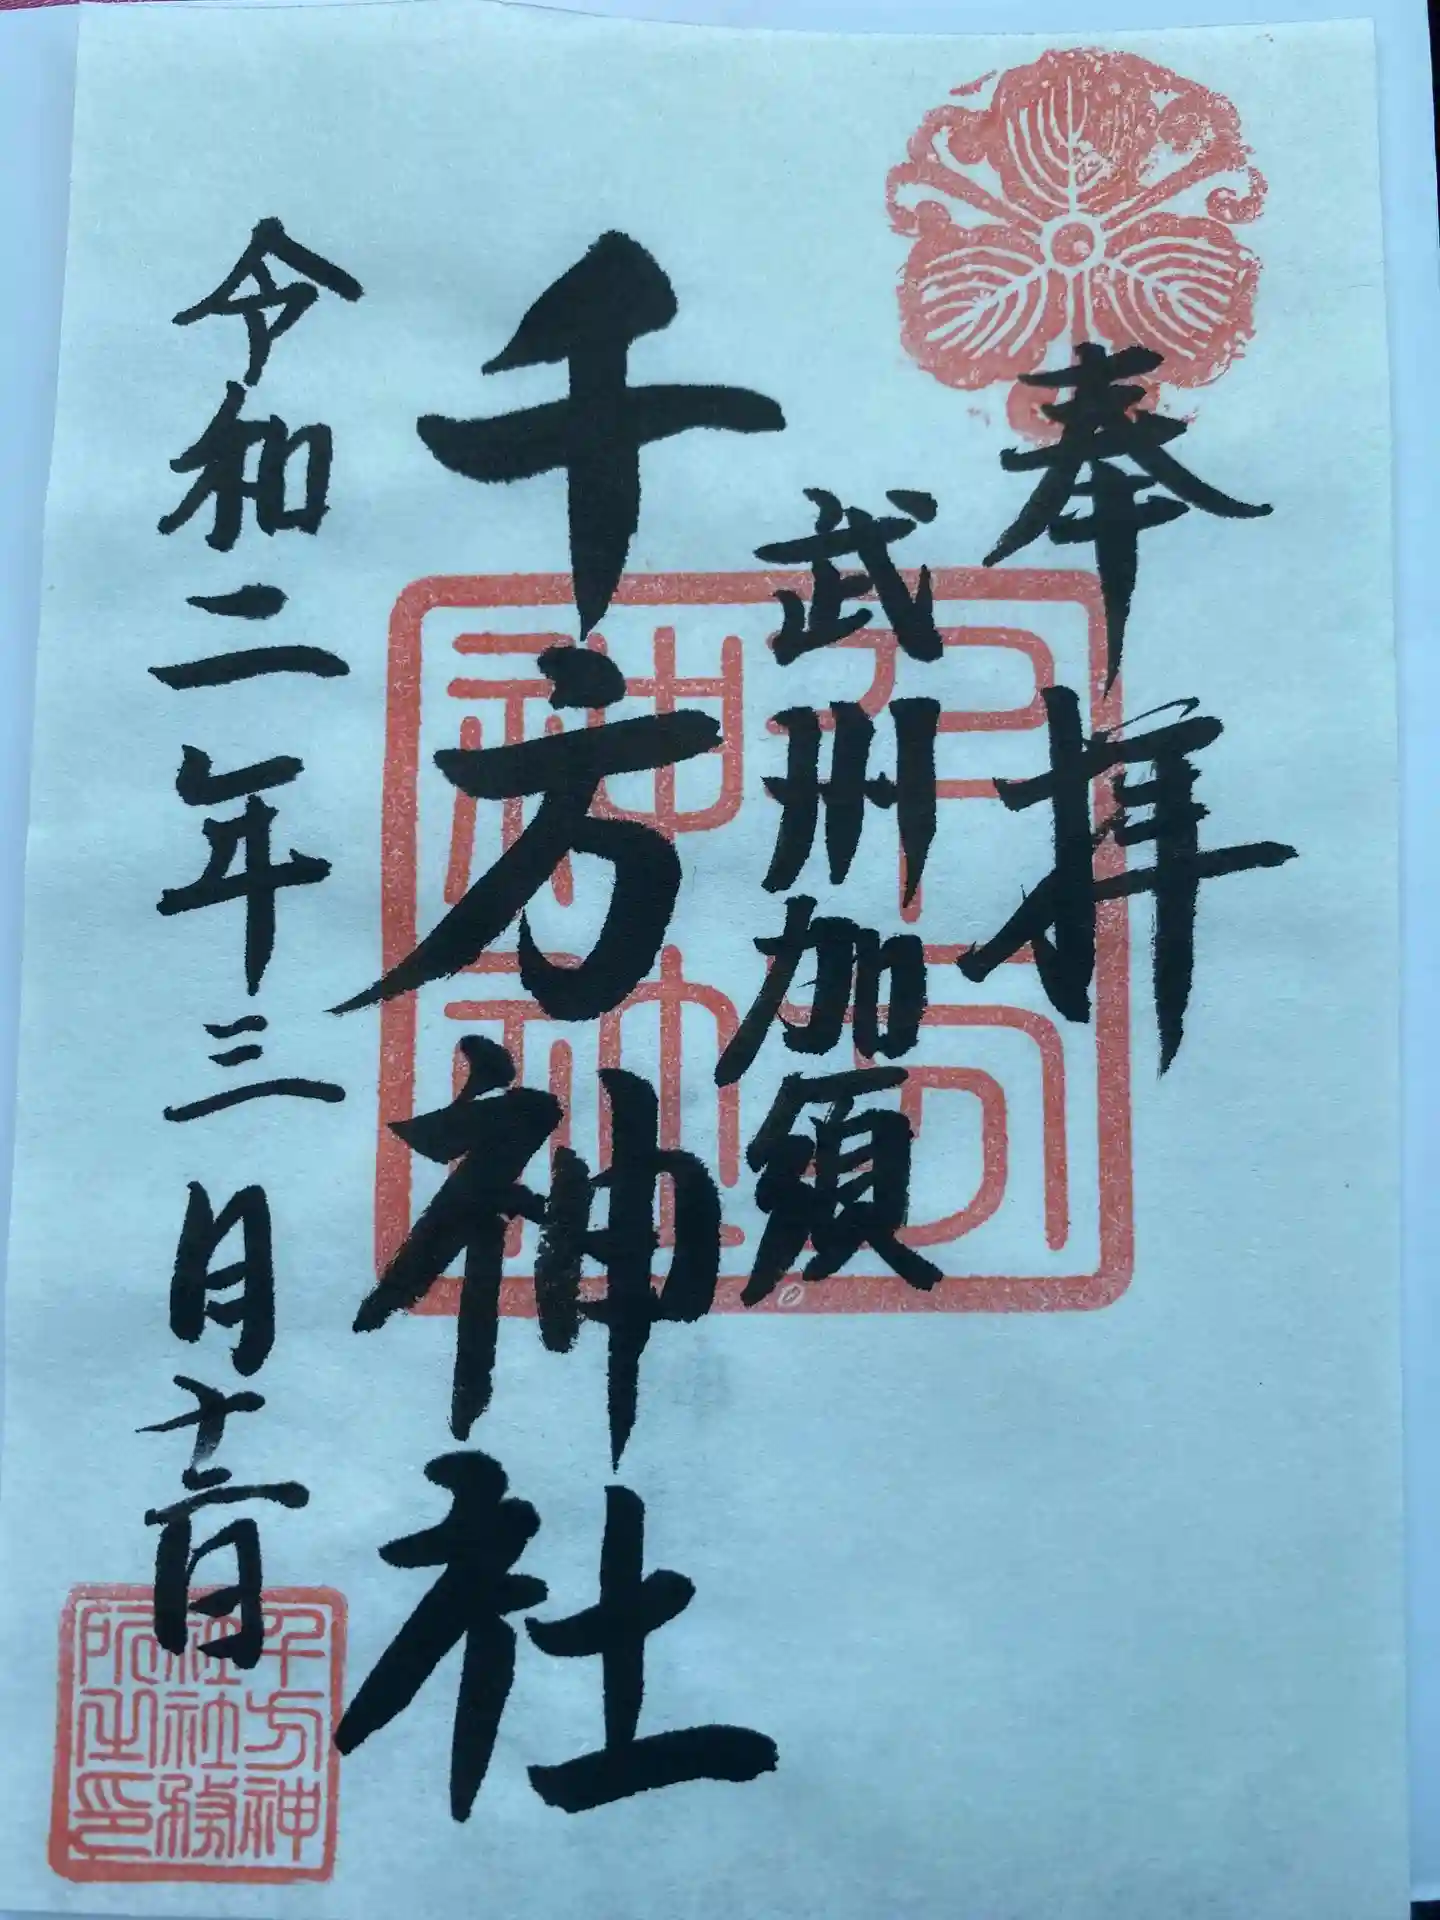 奉拝
武州加須
千方神社
令和二年三月十二日
千方神社
千方神
社社務
所之印